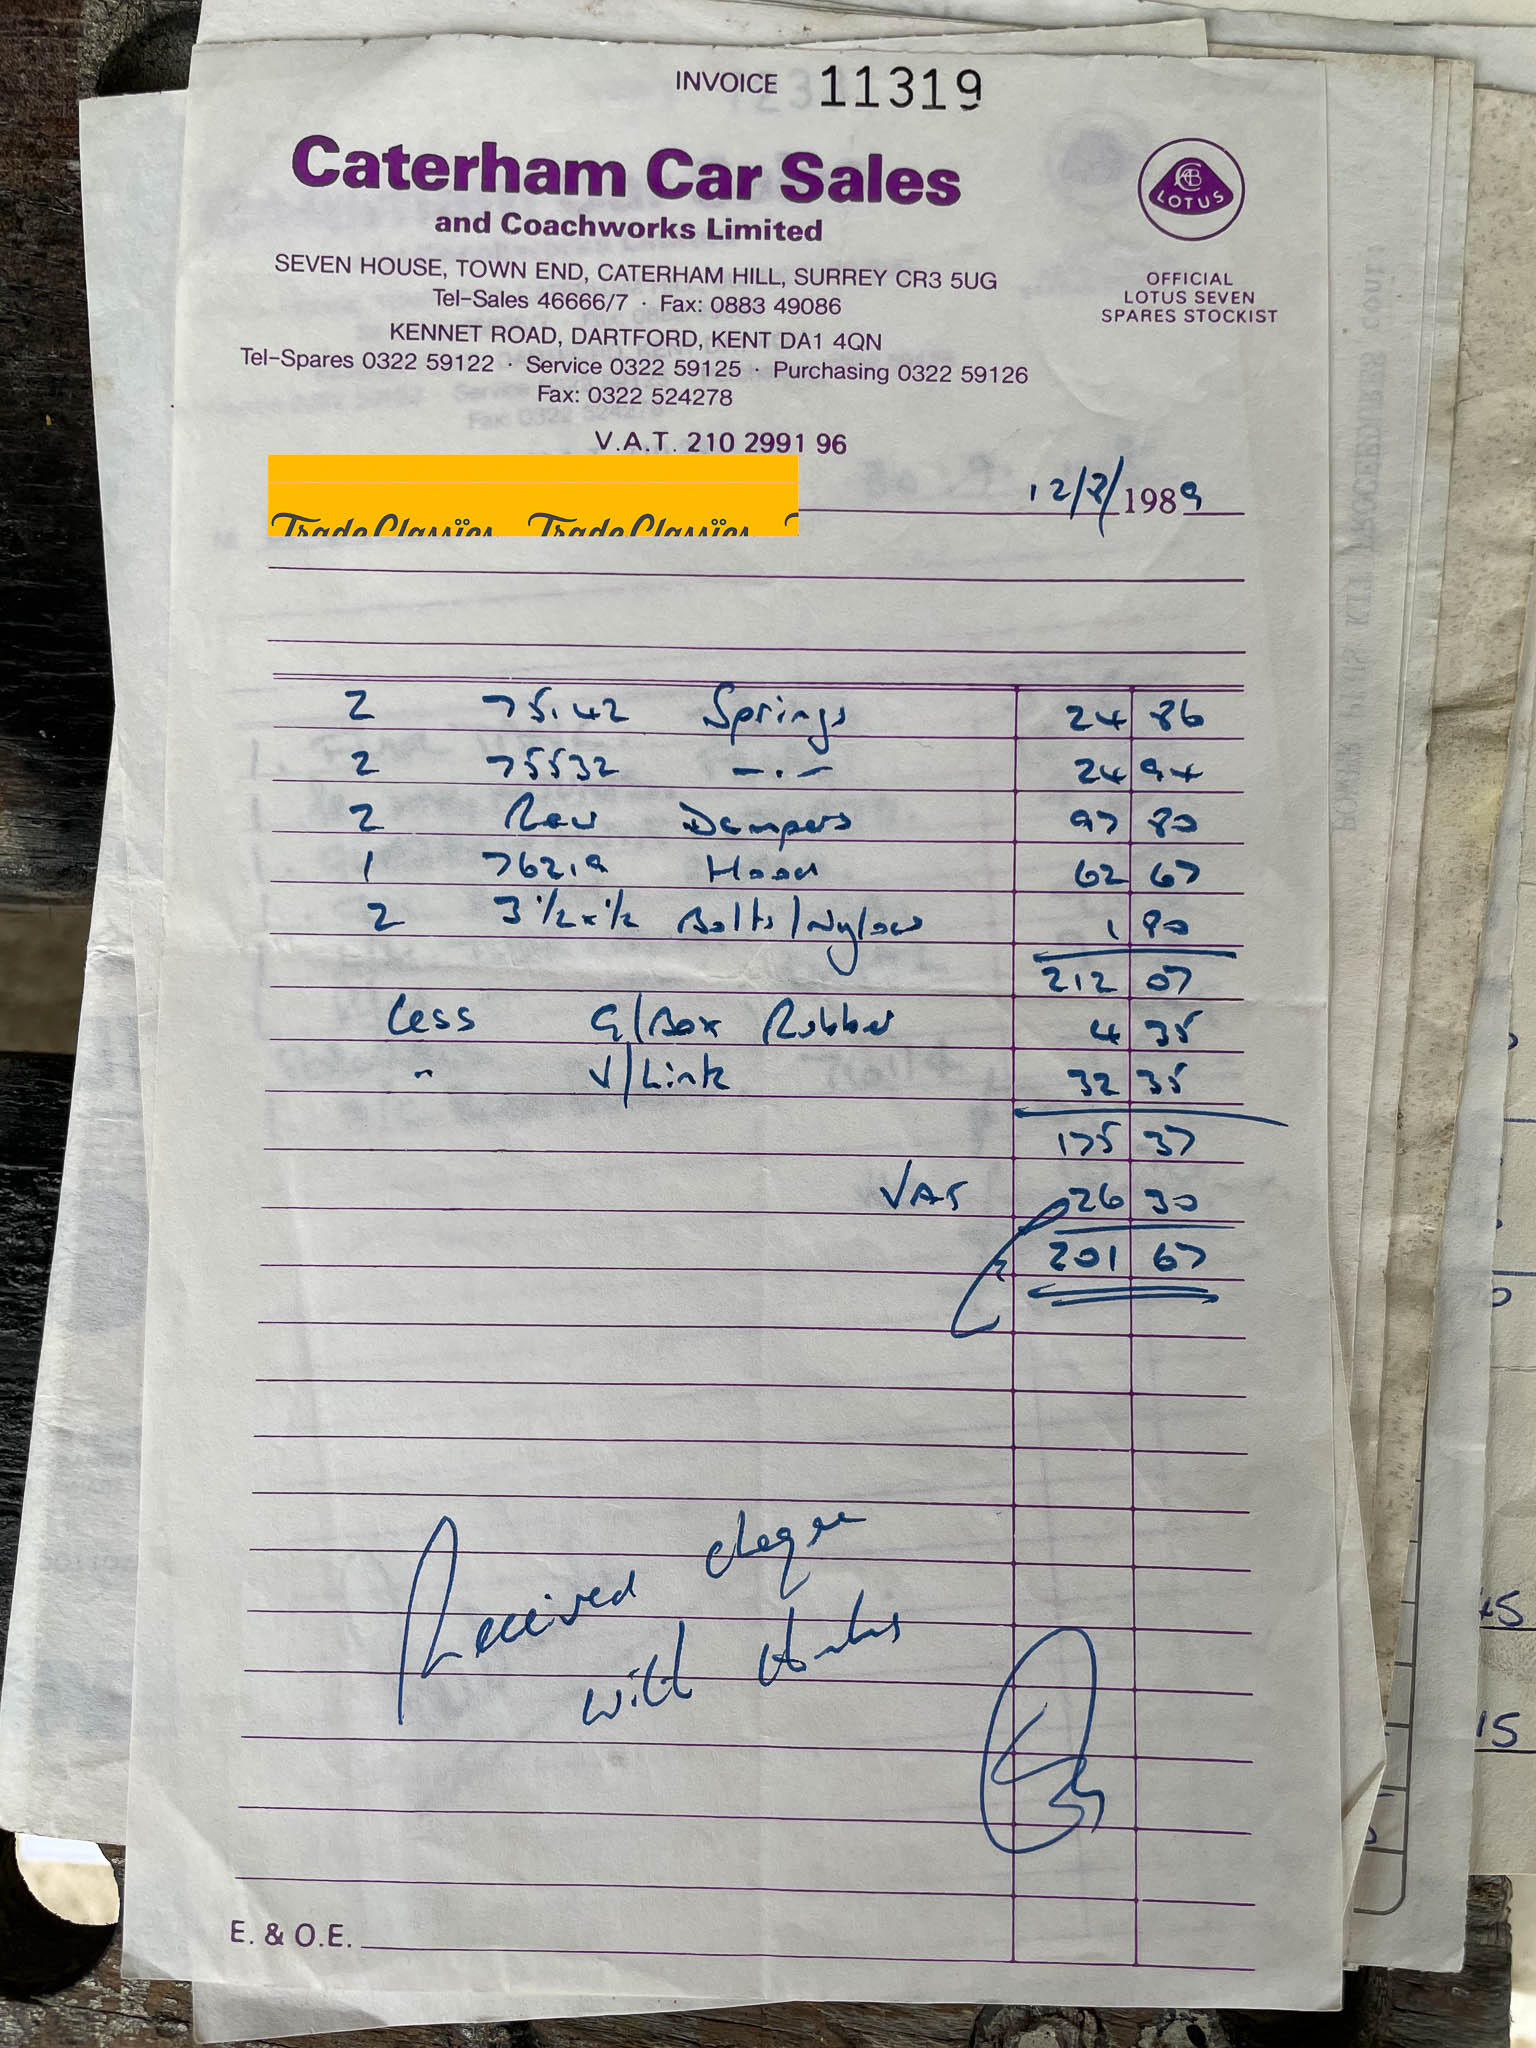 INVOICE 11319
Caterham Car Sales
and Coachworks Limited
SEVEN HOUSE, TOWN END, CATERHAM HILL, SURREY CR3 5UG
Tel-Sales 46666/7 · Fax: 0883 49086
KENNET ROAD, DARTFORD, KENT DA1 4QN
Tel-Spares 0322 59122 · Service 0322 59125 · Purchasing 0322 59126
Fax: 0322 524278
V.A.T. 210 2991 96
LOTUS
OFFICIAL
LOTUS SEVEN
SPARES STOCKIST
Trade Classics Trade Classics
12/7/1989
2 75142 Springs 24 86
2 75532 -·- 24 94
2 Rear Dampers 97 80
1 76219 Hood 62 67
2 3 1/2 x 1/2 Bolts/Nylocs 1 80
212 07
Less G/Box Rubber 4 35
" V/Link 32 35
175 37
VAT 26 30
201 67
Received cheque
with thanks
E. & O.E.